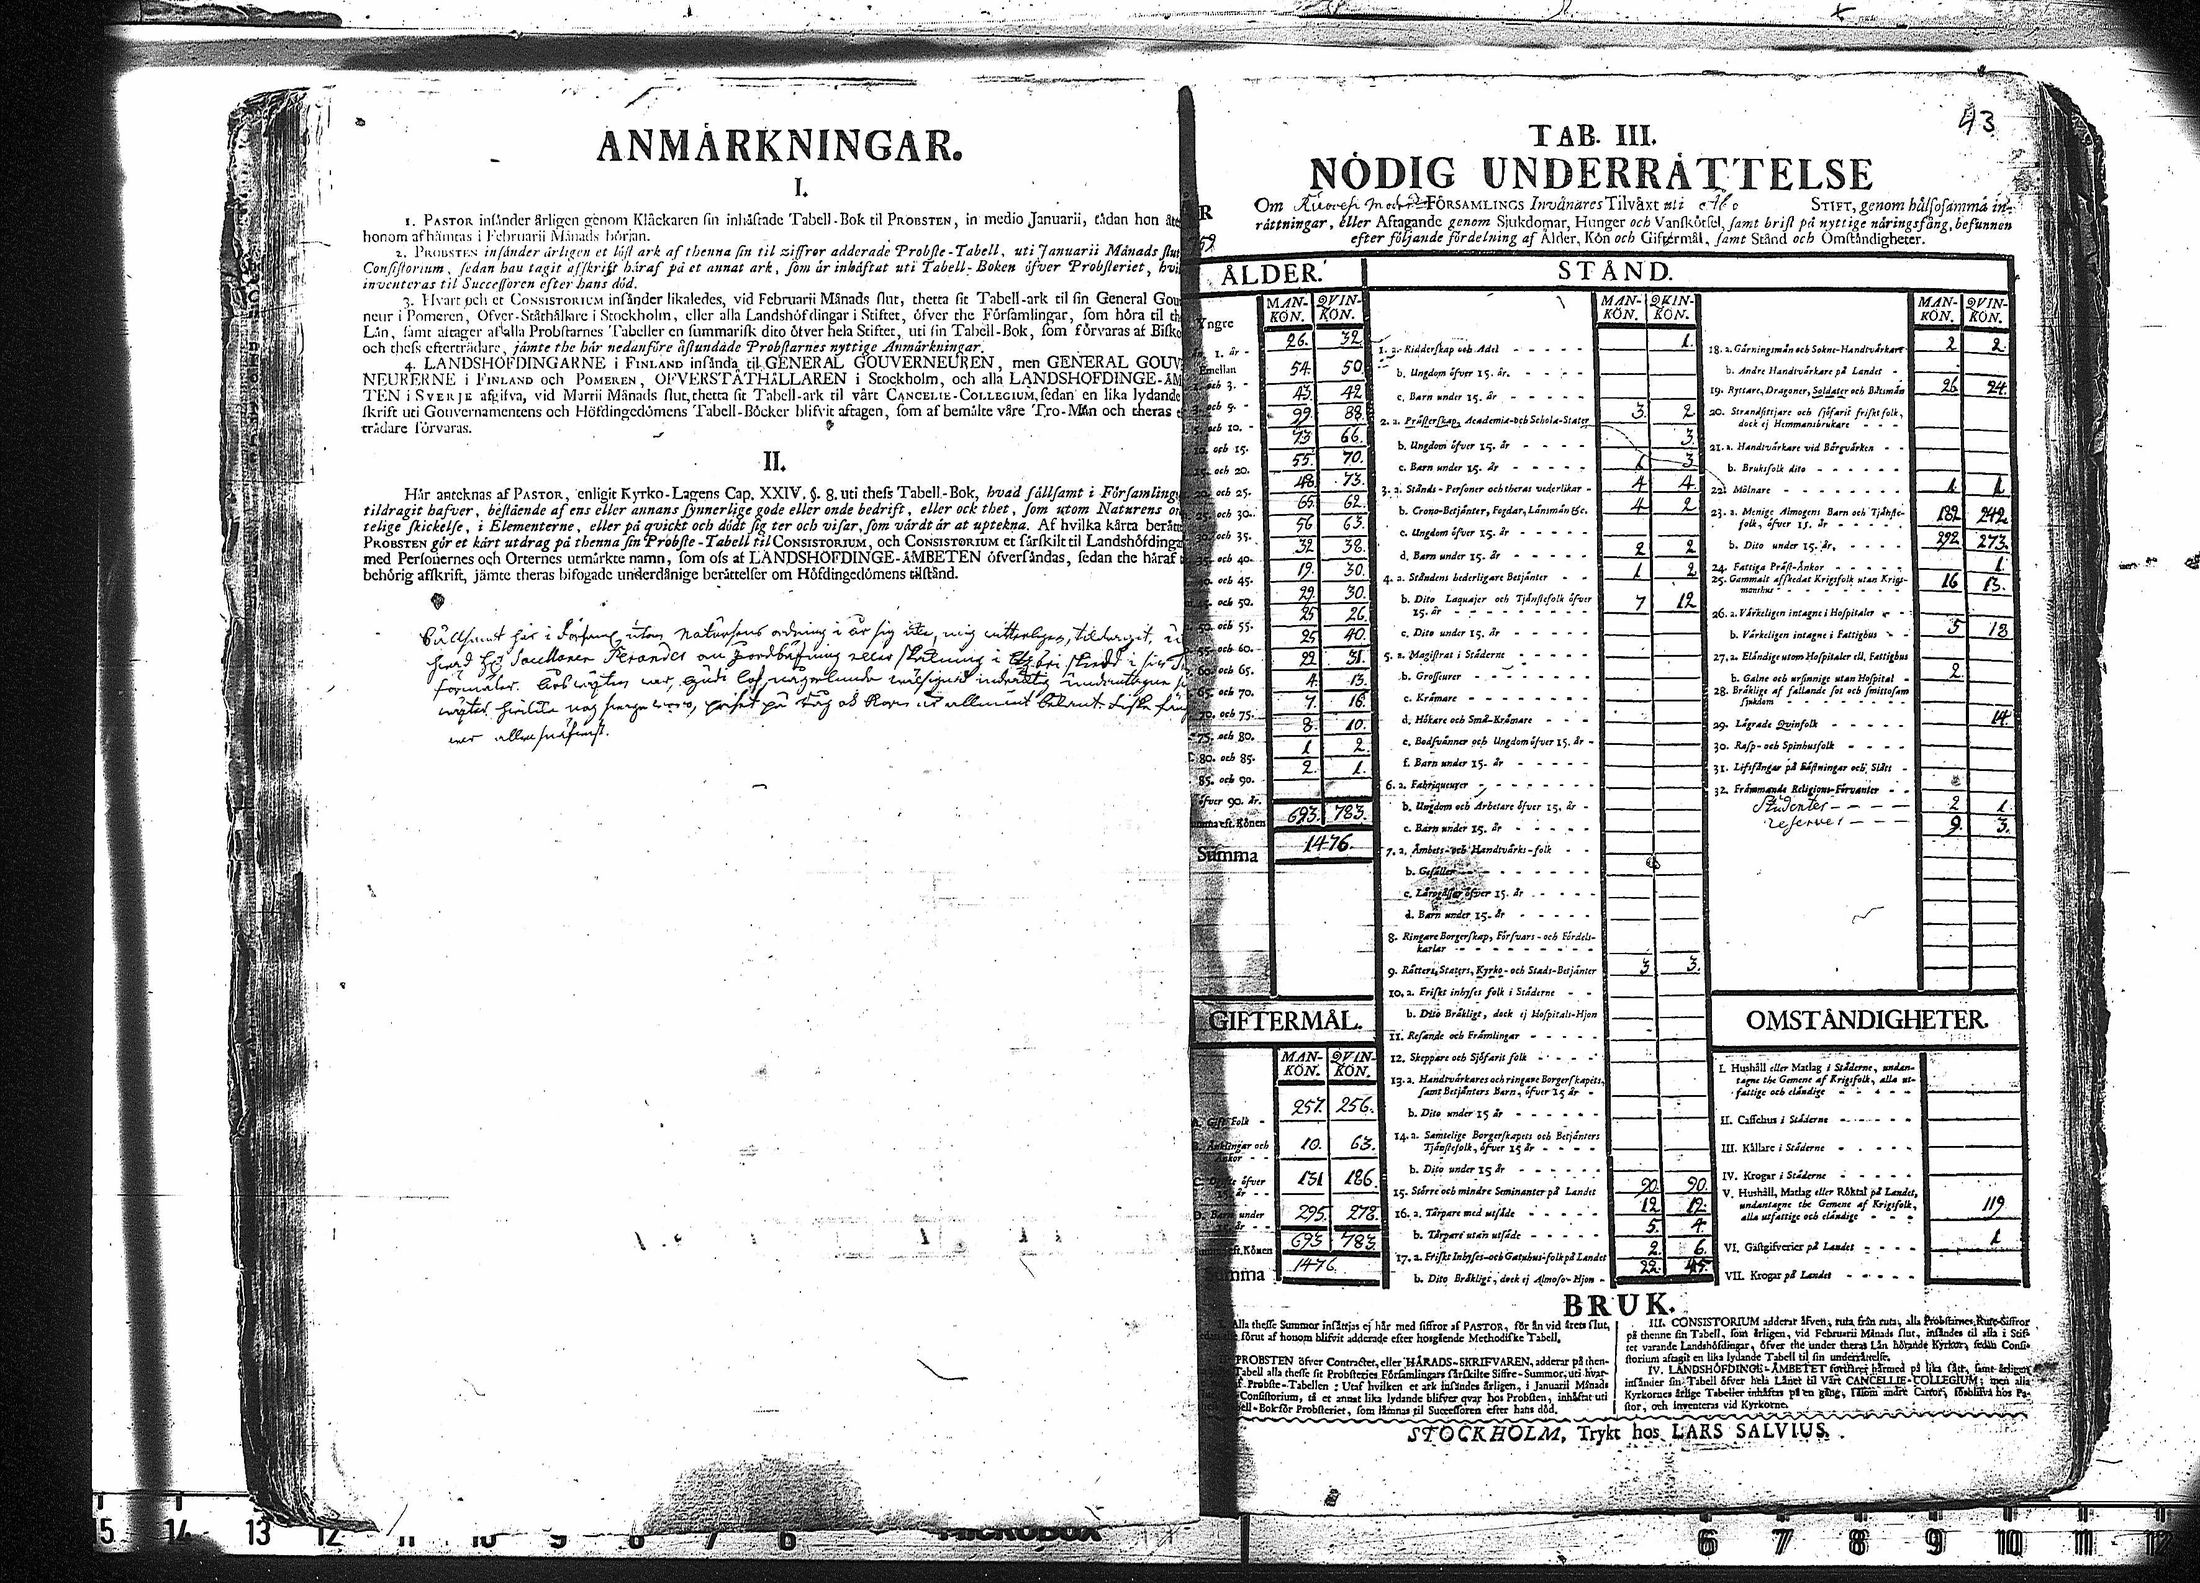 ANMÄRKNINGAR.
I.
1. PASTOR insänder årligen genom Kläckaren sin inhäftade Tabell-Bok til PROBSTEN, in medio Januarii, tädan hon åte
honom afhämtas i Februarii Månads början.
2. PROBSTEN insänder årligen et löst ark af thenna sin til ziffror adderade Probste-Tabell, uti Januarii Månads slut
Consistorium, sedan han tagit afskrift häraf på et annat ark, som är inhäftat uti Tabell-Boken öfver Probsteriet, hvi
inventeras til Successoren efter hans död.
3. Hvart och et CONSISTORIUM insänder likaledes, vid Februarii Månads slut, thetta sit Tabell-ark til sin General Gou
neur i Pomeren, Öfver-Ståthållare i Stockholm, eller alla Landshöfdingar i Stiftet, öfver the Församlingar, som höra til th
Län, samt aftager af alla Probstarnes Tabeller en summarisk dito öfver hela Stiftet, uti sin Tabell-Bok, som förvaras af Bisko
och thess efterträdare, jämte the här nedanföre åstundade Probstarnes nyttige Anmärkningar.
4. LANDSHÖFDINGARNE i FINLAND insända til GENERAL GOUVERNEUREN, men GENERAL GOUV
NEURERNE i FINLAND och POMEREN, ÖFVERSTÅTHÅLLAREN i Stockholm, och alla LANDSHÖFDINGE-ÄM
TEN i SVERJE afgifva, vid Martii Månads slut, thetta sit Tabell-ark til vårt CANCELIE-COLLEGIUM, sedan en lika lydande
skrift uti Gouvernamentens och Höfdingedömens Tabell-Böcker blifvit aftagen, som af bemälte våre Tro-Män och theras e
trädare förvaras.
II.
Här antecknas af PASTOR, enligit Kyrko-Lagens Cap. XXIV. §. 8. uti thess Tabell-Bok, hvad sällsamt i Församling
tildragit hafver, bestående af ens eller annans synnerlige gode eller onde bedrift, eller ock thet, som utom Naturens or
telige skickelse, i Elementerne, eller på qvickt och dödt sig ter och visar, som värdt är at uptekna. Af hvilka kårta berätte
PROBSTEN gör et kårt utdrag på thenna sin Probste-Tabell til CONSISTORIUM, och CONSISTORIUM et särskilt til Landshöfdinga
med Personernes och Orternes utmärkte namn, som oss af LANDSHÖFDINGE-ÄMBETEN öfversändas, sedan the häraf
behörig afskrift, jämte theras bifogade underdånige berättelser om Höfdingedömens tilstånd.
43
TAB. III.
NÖDIG UNDERRÄTTELSE
Om FÖRSAMLINGS Invånares Tilväxt uti Åbo STIFT, genom hälsosamma in-
rättningar, eller Aftagande genom Sjukdomar, Hunger och Vanskötsel, samt brist på nyttige näringsfång, befunnen
efter följande fördelning af Ålder, Kön och Giftermål, samt Stånd och Omständigheter.
ÅLDER.
MAN-KÖN. QVIN-KÖN.
Yngre
1. år - 26. 32
Emellan
och 3. - 54. 50
och 5. - 43. 42
och 10. - 99. 88
10. och 15. 73 66.
och 20. 55. 70.
och 25. 48 73.
25. och 30. 65. 62
och 35. 56 63.
och 40. 32 38.
och 45. 19. 30.
och 50. 29. 30.
50. och 55. 25 26.
55. och 60. 25 40.
60. och 65. 22 31.
65. och 70. 4. 13.
70. och 75. 7. 16.
75. och 80. 8. 10.
80. och 85. 1 2.
85. och 90. 2 1.
öfver 90. år.
Summa eft. Könen 693. 783.
Summa 1476.
GIFTERMÅL.
MAN-KÖN. QVIN-KÖN.
A. Gift Folk - 257. 256.
B. Änklingar och Änkor - - 10. 63.
C. Ogifte öfver 15. år - - 131 186.
D. Barn under 15. år - - 295. 278.
Summa eft. Könen 693 783.
Summa 1476
STÅND.
MAN-KÖN. QVIN-KÖN.
1. a. Ridderskap och Adel 1.
b. Ungdom öfver 15. år.
c. Barn under 15. år
2. a. Prästerskap, Academia- och Schola-Stater 3. 2
b. Ungdom öfver 15. år 3.
c. Barn under 15. år 1 3
3. a. Stånds-Personer och theras vederlikar - 4 4
b. Crono-Betjänter, Fogdar, Länsmän &c. 4 2
c. Ungdom öfver 15. år
d. Barn under 15. år 2 2
4. a. Ståndens hederligare Betjänter 1 2
b. Dito Laquajer och Tjänstefolk öfver 15. år 7 12
c. Dito under 15. år
5. a. Magistrat i Städerne
b. Grosseurer
c. Krämare
d. Hökare och Små-Krämare
e. Bodsvänner och Ungdom öfver 15. år -
f. Barn under 15. år
6. a. Fabriqueurer
b. Ungdom och Arbetare öfver 15. år -
c. Barn under 15. år
7. a. Ämbets- och Handtvärks-folk
b. Gesäller
c. Lärogåssar öfver 15. år
d. Barn under 15. år
8. Ringare Borgerskap, Försvars- och Fördels-karlar
9. Rätters, Staters, Kyrko- och Stads-Betjänter 3 3.
10. a. Friskt inhyses folk i Städerne
b. Dito Bräkligt, dock ej Hospitals-Hjon
11. Resande och Främlingar
12. Skeppare och Sjöfarit folk
13. a. Handtvärkares och ringare Borgerskapets, samt Betjänters Barn, öfver 15 år
b. Dito under 15 år
14. a. Samtelige Borgerskapets och Betjänters Tjänstefolk, öfver 15 år
b. Dito under 15 år
15. Större och mindre Seminanter på Landet 90. 90.
16. a. Tärpare med utsäde 12 12.
b. Tärpare utan utsäde 5. 4.
17. a. Friskt Inhyses- och Gatuhus-folk på Landet 2. 6.
b. Dito Bräkligt, dock ej Almoso-Hjon - 22. 45.
MAN-KÖN. QVIN-KÖN.
18. a. Gärningsmän och Sokne-Handtvärkare 2 2.
b. Andre Handtvärkare på Landet -
19. Ryttare, Dragoner, Soldater och Båtsmän 26 24.
20. Strandsittjare och sjöfarit friskt folk, dock ej Hemmansbrukare
21. a. Handtvärkare vid Bärgvärken
b. Bruksfolk dito
22. Mölnare 1 1
23. a. Menige Almogens Barn och Tjänste-folk, öfver 15. år 182 242
b. Dito under 15. år, 292 273.
24. Fattiga Präst-Änkor 1.
25. Gammalt affskedat Krigsfolk utan Krigsmanshus 16 13.
26. a. Värkeligen intagne i Hospitaler
b. Värkeligen intagne i Fattighus 5 18
27. a. Eländige utom Hospitaler ell. Fattighus
b. Galne och ursinnige utan Hospital - 2
28. Bräklige af fallande sot och smittosam sjukdom
29. Lägrade Qvinfolk 14.
30. Rasp- och Spinhusfolk
31. Lifsfångar på Fästningar och Slått
32. Främmande Religions-Förvanter
Studenter - - - - 2 1
reserver - - - 9. 3.
OMSTÄNDIGHETER.
I. Hushåll eller Matlag i Städerne, undantagne the Gemene af Krigsfolk, alla utfattige och eländige
II. Caffehus i Städerne
III. Källare i Städerne
IV. Krogar i Städerne
V. Hushåll, Matlag eller Röktal på Landet, undantagne the Gemene af Krigsfolk, alla utfattige och eländige 119
VI. Gästgifverier på Landet 1
VII. Krogar på Landet
BRUK.
Alla thesse Summor insättjas ej här med siffror af PASTOR, för än vid årets slut,
förut af honom blifvit adderade efter hosgående Methodiske Tabell.
PROBSTEN öfver Contractet, eller HÄRADS-SKRIFVAREN, adderar på then-
Tabell alla thesse sit Probsteries Församlingars särskilte Siffre-Summor, uti hvar-
Probste-Tabellen: Utaf hvilken et ark insändes årligen, i Januarii Månads
Consistorium, tå et annat lika lydande blifver qvar hos Probsten, inhäftat uti
ell-Bok för Probsteriet, som lämnas til Successoren efter hans död.
III. CONSISTORIUM adderar äfven, ruta från ruta, alla Probstarnes Rute-Siffror
på thenne sin Tabell, som årligen, vid Februarii Månads slut, insändes til alla i Stif-
tet varande Landshöfdingar, öfver the under theras Län hörande Kyrkor, sedan Consi-
storium aftagit en lika lydande Tabell til sin underrättelse.
IV. LANDSHÖFDINGE-ÄMBETET fortfarer härmed på lika sätt, samt årligen
insänder sin Tabell öfver hela Länet til Vårt CANCELLIE-COLLEGIUM; men alla
Kyrkornes årlige Tabeller inhäftas på en gång, såsom andre Cartor, blifva hos Pa-
stor, och inventeras vid Kyrkorne.
STOCKHOLM, Trykt hos LARS SALVIUS.
15 14 13 12 11 10 9 8 7 6 MICROBOX 6 7 8 9 10 11 12